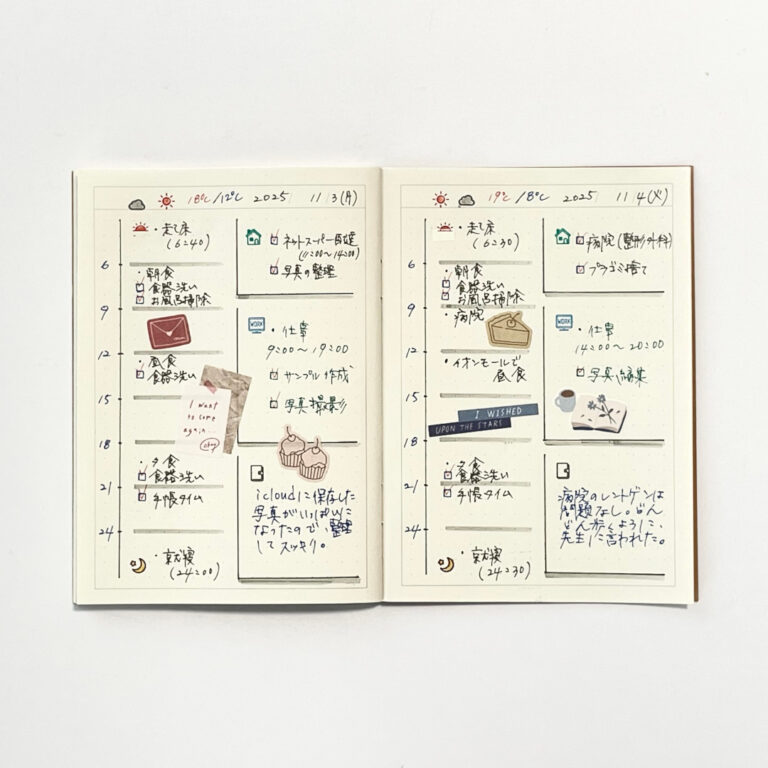 18℃/12℃ 2025 11/3(月)
・起床
(6:40)
6
・朝食
食器洗い
お風呂掃除
9
12
・昼食
食器洗い
15
I want
to come
again...
okay
18
・夕食
食器洗い
21
手帳タイム
24
・就寝
(24:00)
ネットスーパー配達
(11:00〜14:00)
写真の整理
WORK
・仕事
9:00〜19:00
サンプル作成
写真撮影
icloudに保存した
写真がいっぱいに
なったので、整理
してスッキリ。
19℃/8℃ 2025 11/4(火)
・起床
(6:30)
6
・朝食
食器洗い
お風呂掃除
9
・病院
12
・イオンモールで
昼食
15
I WISHED
UPON THE STARS
18
・夕食
食器洗い
21
手帳タイム
24
・就寝
(24:30)
病院(整形外科)
プラゴミ捨て
WORK
・仕事
14:00〜20:00
写真編集
病院のレントゲンは
問題なし。どん
どん歩くように、
先生に言われた。